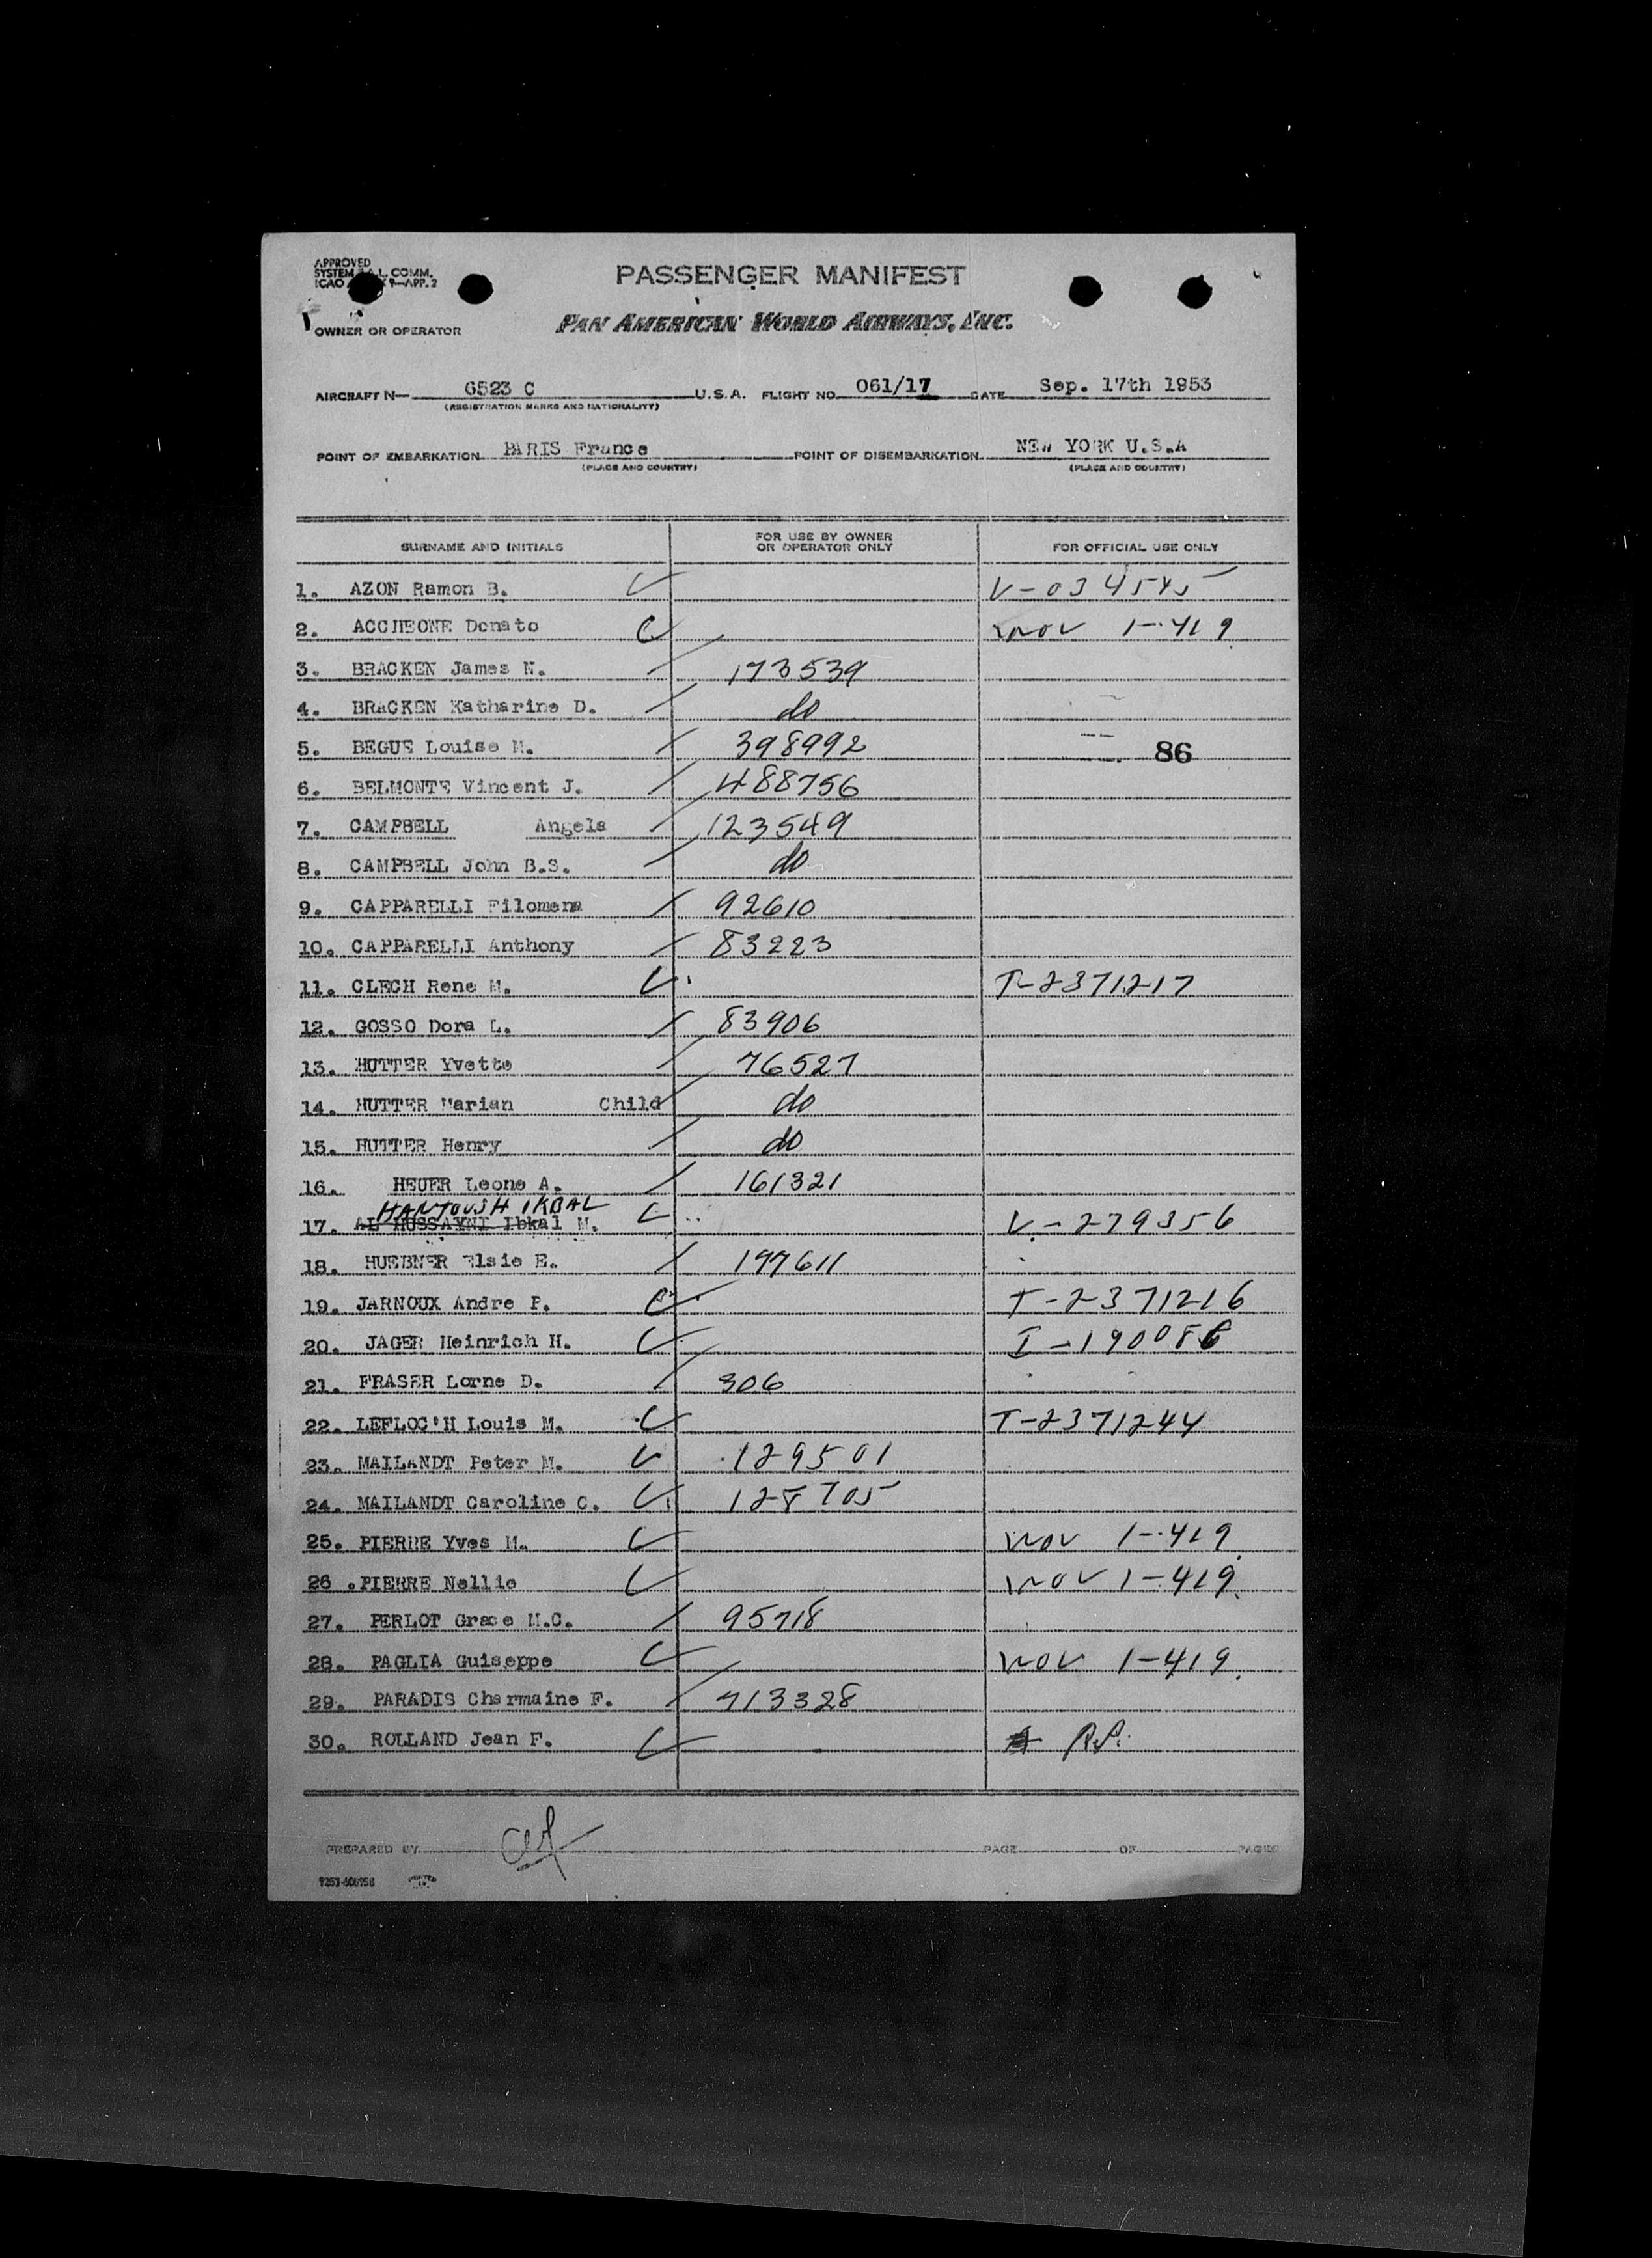 APPROVED
SYSTEM L. COMM.
ICAO 9—APP. 2
PASSENGER MANIFEST
OWNER OR OPERATOR PAN AMERICAN WORLD AIRWAYS, INC.
AIRCRAFT N— 6523 C U.S.A. FLIGHT NO. 061/17 DATE Sep. 17th 1953
(REGISTRATION MARKS AND NATIONALITY)
POINT OF EMBARKATION PARIS France POINT OF DISEMBARKATION NEW YORK U.S.A
(PLACE AND COUNTRY) (PLACE AND COUNTRY)
SURNAME AND INITIALS FOR USE BY OWNER OR OPERATOR ONLY FOR OFFICIAL USE ONLY
1. AZON Ramon B. V-034545
2. Donato 1-419
3. BRACKEN James N. 173539
4. BRACKEN Katharine D. do
5. BEGUE Louise M. 398992 86
6. BELMONTE Vincent J. 488756
7. CAMPBELL Angela 123549
8. CAMPBELL John B.S. do
9. CAPPARELLI Filomena 92610
10. CAPPARELLI Anthony 83223
11. CLECH Rene M. T-2371217
12. GOSSO Dora L. 83906
13. HUTTER Yvette 76527
14. HUTTER Marian Child do
15. HUTTER Henry do
16. HEUER Leone A. 161321
HANTOUSH IKBAL
17. AL HUSSAYNI Ibkal M. V-279356
18. HUEBNER Elsie E. 197611
19. JARNOUX Andre P. T-2371216
20. JAGER Heinrich H. I-190086
21. FRASER Lorne D. 306
22. LEFLOC'H Louis M. T-2371244
23. MAILANDT Peter M. 129501
24. MAILANDT Caroline C. 128705
25. PIERRE Yves M. 1-419
26. PIERRE Nellie 1-419
27. PERLOT Grace M.C. 95718
28. PAGLIA Guiseppe 1-419
29. PARADIS Charmaine F. 713328
30. ROLLAND Jean F.
PREPARED BY PAGE OF PAGES